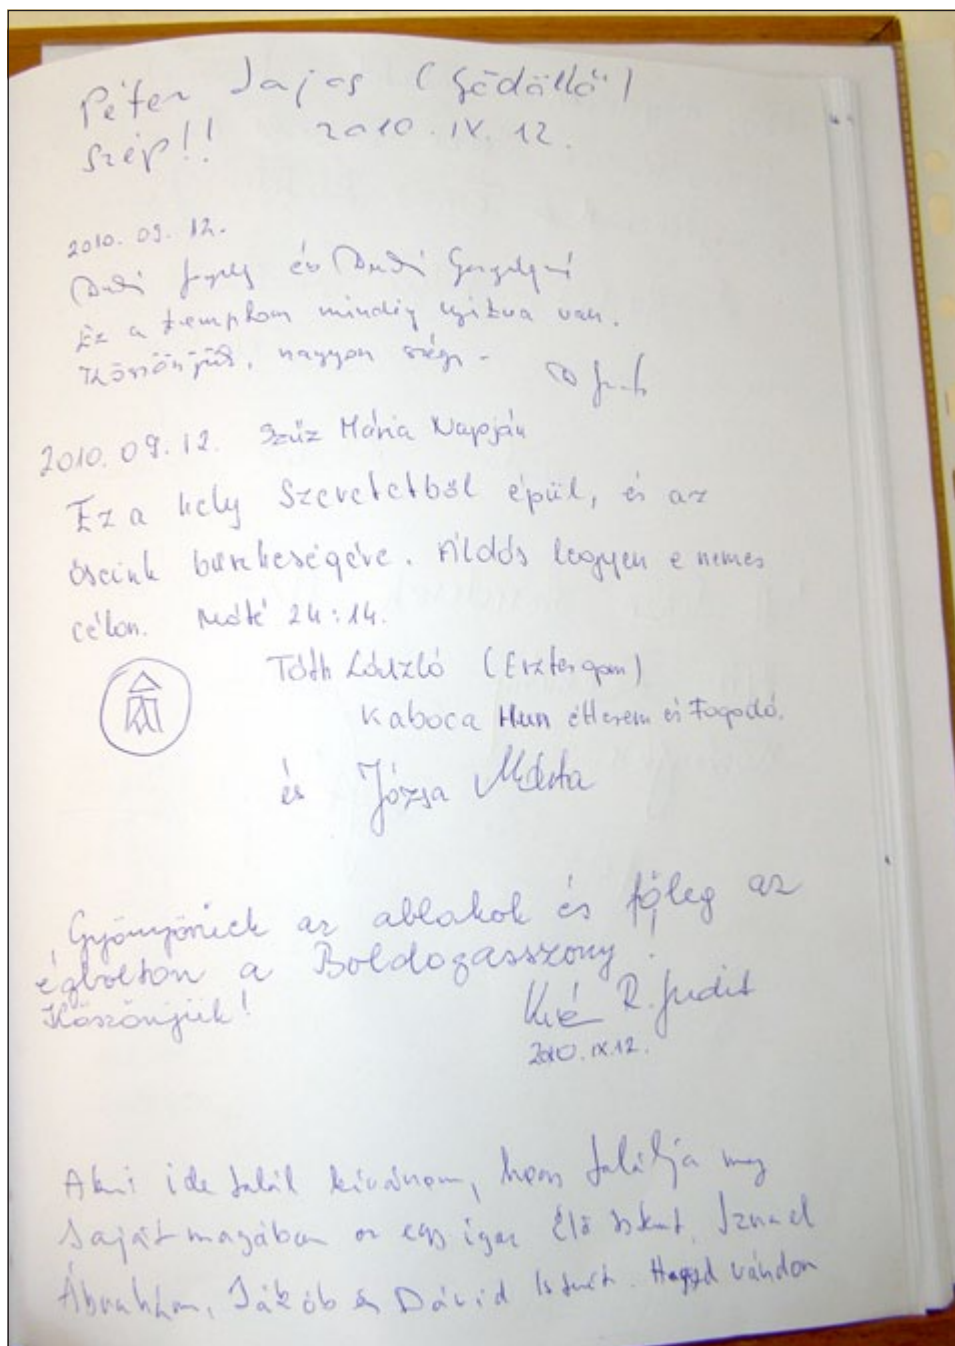 Péter Jajos (Gödöllő)
Szép!! 2010.IX.12.
2010. 09. 12.
és
Ez a templom mindig nyitva van.
Köszönjük, nagyon szép.
2010.09.12. Szűz Mária Napján
Ez a hely Szeretetből épül, és az
őseink büszkeségére. Áldás legyen e nemes
célon. Máté 24:14.
Tóth László (Esztergom)
Kaboca Hun étterem és Fogadó.
és Józsa Márta
Gyönyörűek az ablakok és főleg az
égbolton a Boldogasszony!
Köszönjük!
R. Judit
2010.IX.12.
Aki ide talál kívánom, hogy találja meg
saját magában az egy igaz Élő Istent, Izrael
Ábrahám, Jákób és Dávid Istenét. Hagyd vándor